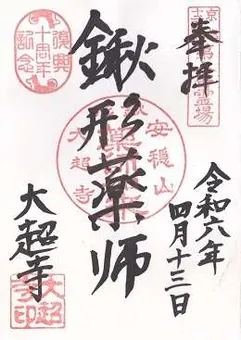 奉拝
霊場
鍬形薬師
安穏山
大超寺
復興
十周年
記念
令和六年
四月十三日
大超寺
大超
寺印